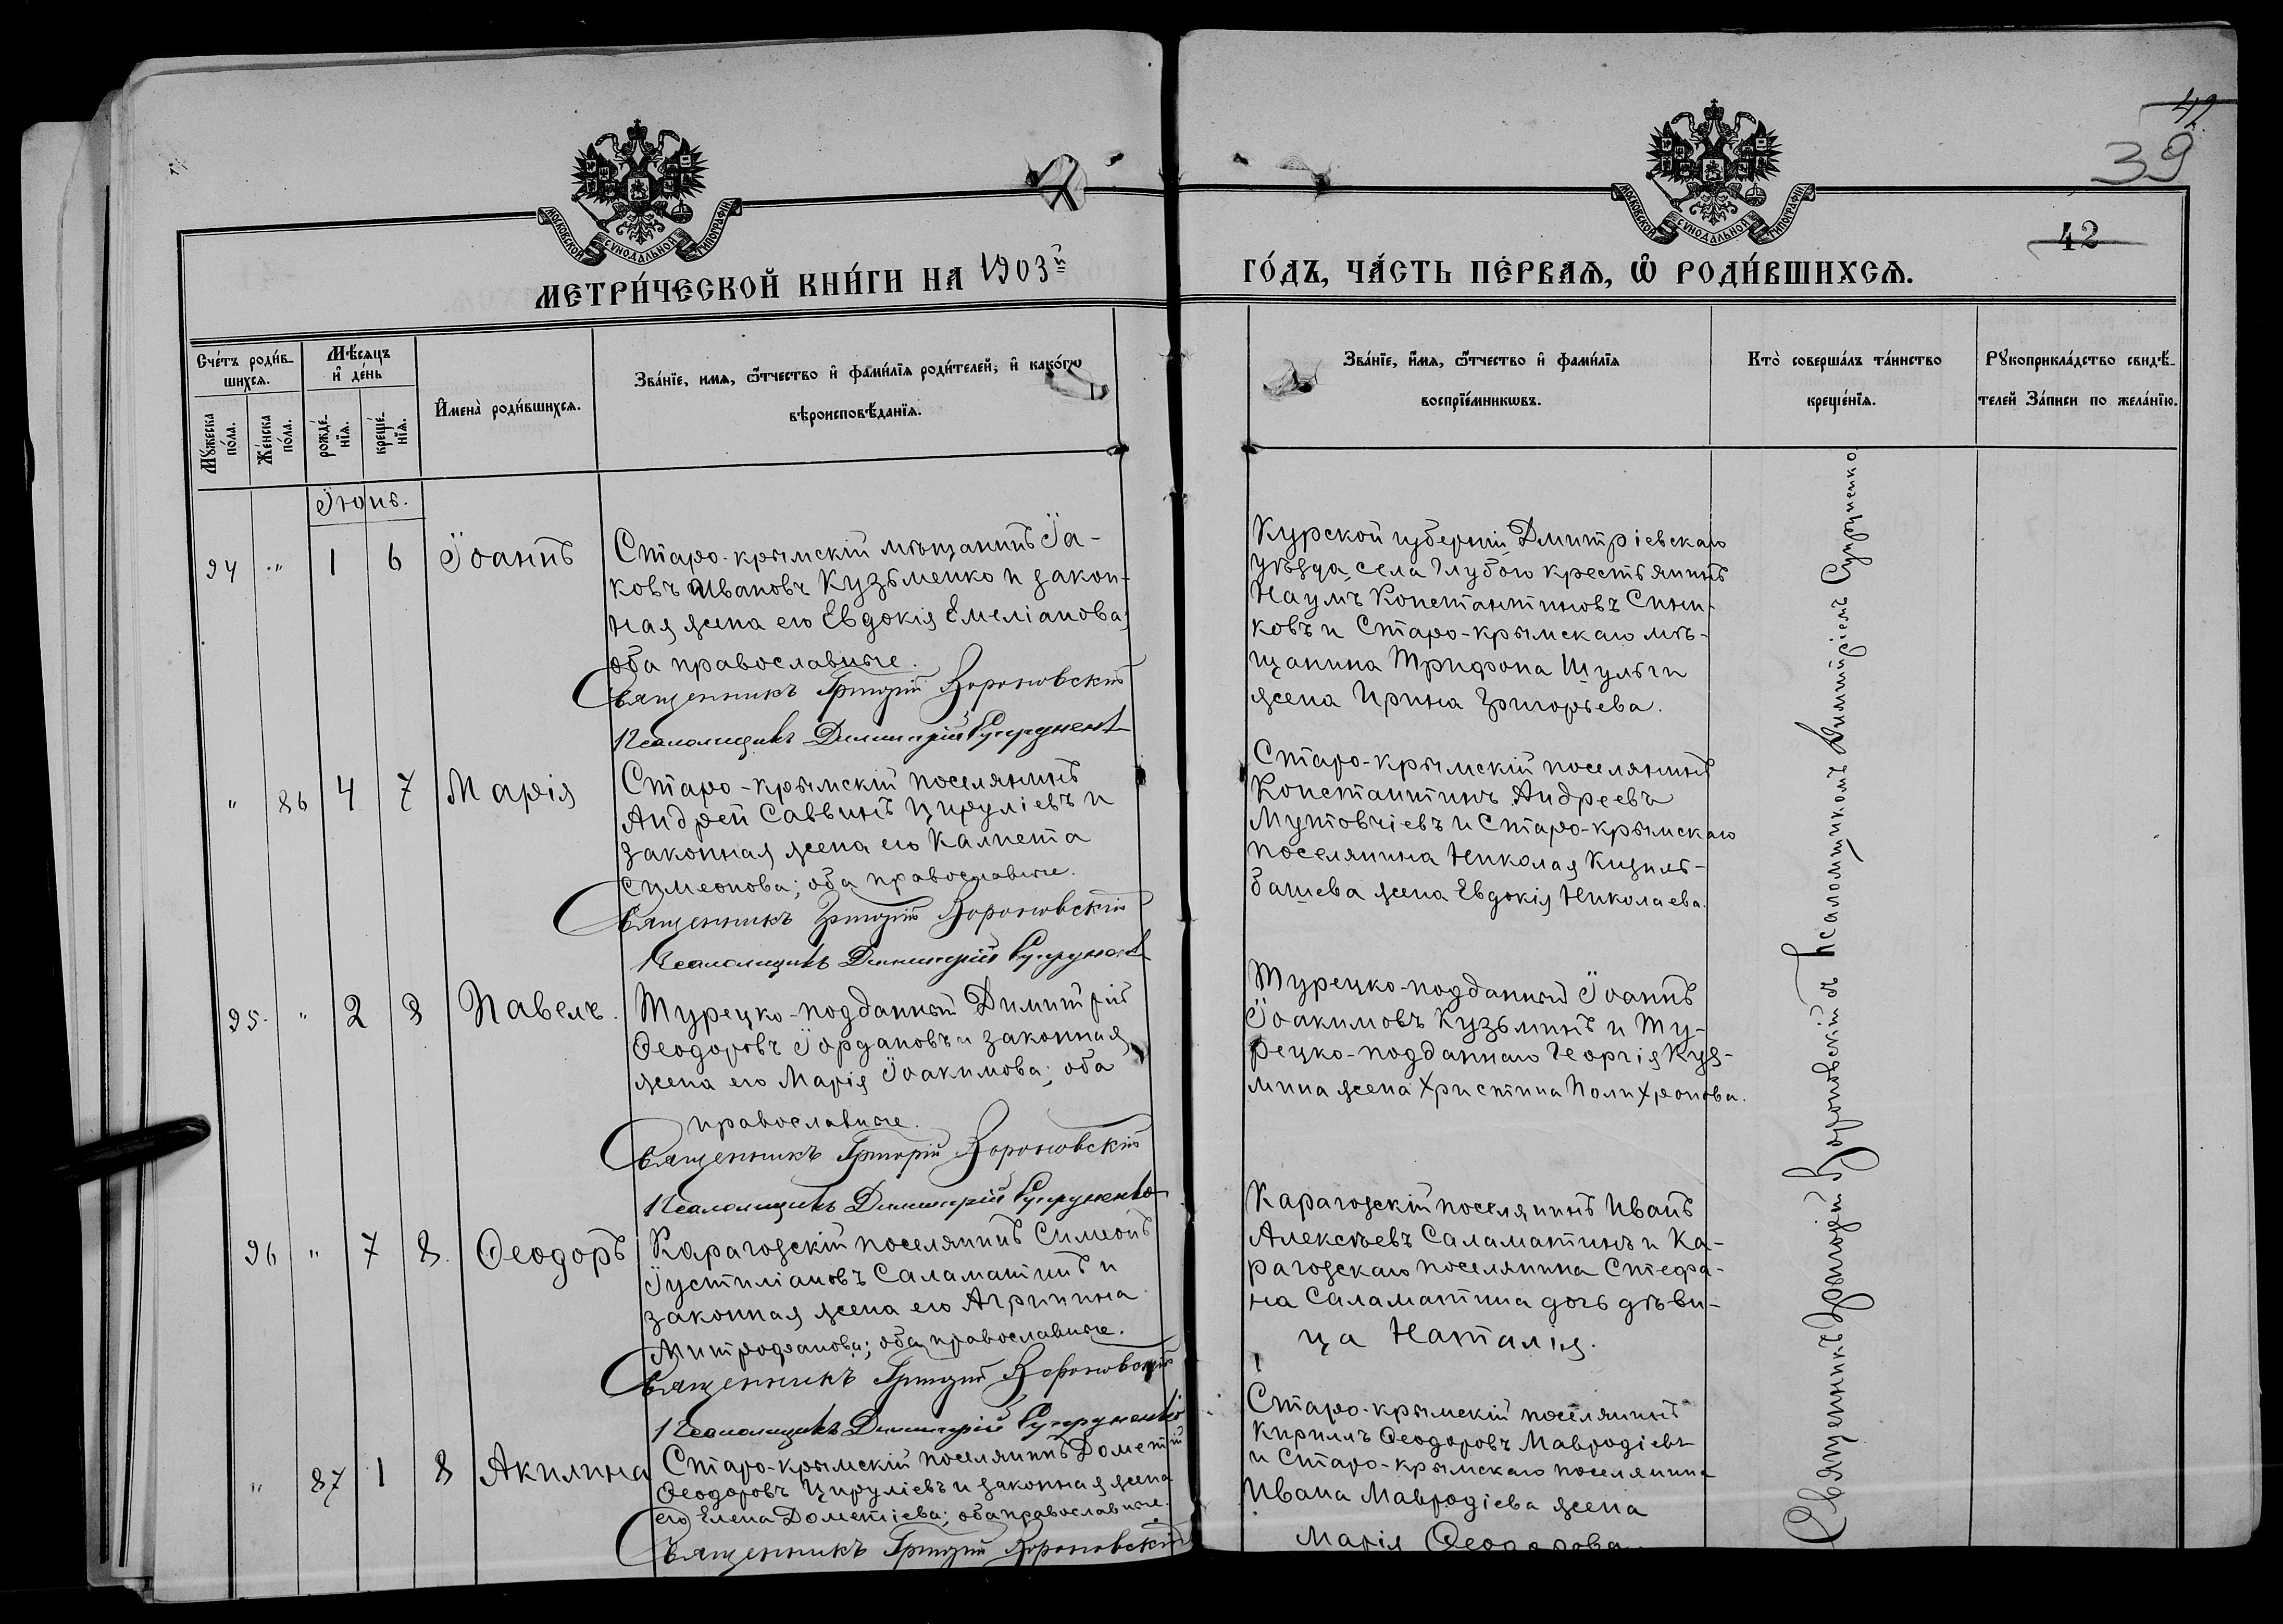 42
39
42
МОСКОВСКОЙ СѴНОДАЛЬНОЙ ТИПОГРАФІИ
МОСКОВСКОЙ СѴНОДАЛЬНОЙ ТИПОГРАФІИ
МЕТРИ́ЧЕСКОЙ КНИ́ГИ НА 1903й
ГО́ДЪ, ЧА́СТЬ ПЕ́РВАѦ, Ѡ҆ РОДИ́ВШИХСѦ.
Сче́тъ роди́в-
шихсѧ.
Мѣ́сѧцъ
и҆ де́нь
Мꙋ́жеска
по́ла.
Же́нска
по́ла.
рожде́-
нїѧ.
креще́-
нїѧ.
И҆мена̀ роди́вшихсѧ.
Зва́нїе, имѧ, ѻ҆́тчество и҆ фамі́лїѧ роди́телей, и҆ како́гѡ
вѣроисповѣ́данїѧ.
Зва́нїе, и҆́мѧ, ѻ҆́тчество и҆ фами́лїѧ
воспрїе́мникѡвъ.
Кто̀ соверша́лъ та́инство
креще́нїѧ.
Рꙋкоприкла́дство свидѣ́-
телей За́писи по жела́нїю.
Іюнь.
94 " 1 6 Іоаннъ
Старо-крымскій мѣщанинъ Іа-
ковъ Ивановъ Кузьменко и закон-
ная жена его Евдокія Емеліанова;
оба православные.
Священникъ Григорій Вороновскій
Псаломщикъ Димитрій Супруненко
Курской губерніи Дмитріевскаго
уѣзда, села Глубого крестьянинъ
Наумъ Константиновъ Сини-
ковъ и Старо-крымскаго мѣ-
щанина Трифона Шульги
жена Ирина Григорьева.
" 86 4 7 Марія
Старо-крымскій поселянинъ
Андрей Саввинъ Цируліевъ и
законная жена его Калиета
Симеонова; оба православные.
Священникъ Григорій Вороновскій
Псаломщикъ Димитрій Супруненко
Старо-крымскій поселянинъ
Константинъ Андреевъ
Мутовчіевъ и Старо-крымскаго
поселянина Николая Кициль-
башева жена Евдокія Николаева.
95. " 2 8 Павелъ.
Турецко-подданный Димитрій
Ѳеодоровъ Іордановъ и законная
жена его Марія Іоакимова; оба
православные.
Священникъ Григорій Вороновскій
Псаломщикъ Димитрій Супруненко
Турецко-подданный Іоаннъ
Іоакимовъ Кузьминъ и Ту-
рецко-подданнаго Георгія Куз-
мина жена Христина Полихронова.
96 " 7 8. Ѳеодоръ
Карагозскій поселянинъ Симеонъ
Іустиліановъ Саламатинъ и
законная жена его Агрипина
Митрофанова; оба православные.
Священникъ Григорій Вороновскій
Псаломщикъ Димитрій Супруненко
Карагозскій поселянинъ Иванъ
Алексѣевъ Саламатинъ и Ка-
рагозскаго поселянина Стефа-
на Саламатина дочь дѣви-
ца Наталія.
" 87 1 8 Акилина
Старо-крымскій поселянинъ Дометій
Ѳеодоровъ Цируліевъ и законная жена
его Елена Дометіева; оба православные.
Священникъ Григорій Вороновскій
Старо-крымскій поселянинъ
Кириллъ Ѳеодоровъ Мавродіевъ
и Старо-крымскаго поселянина
Ивана Мавродіева жена
Марія Ѳеодорова
Священникъ Григорій Вороновскій съ псаломщикомъ Димитріемъ Супруненко